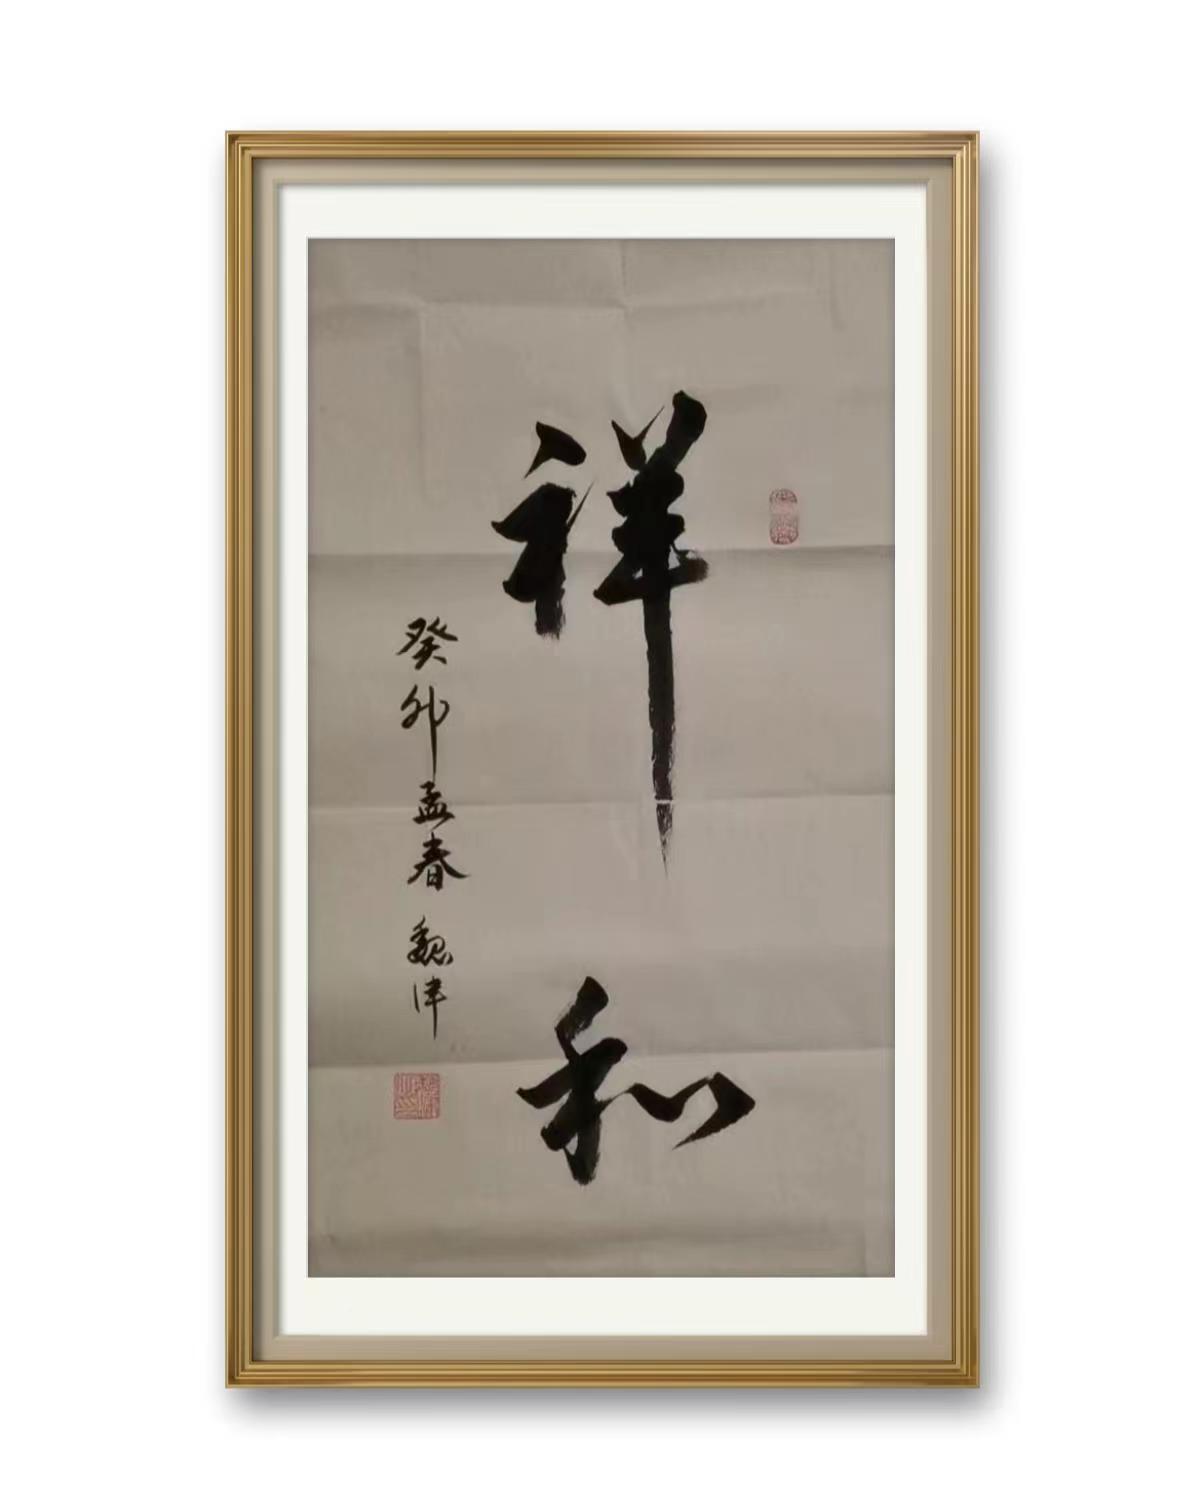 祥和
癸卯孟春 魏津